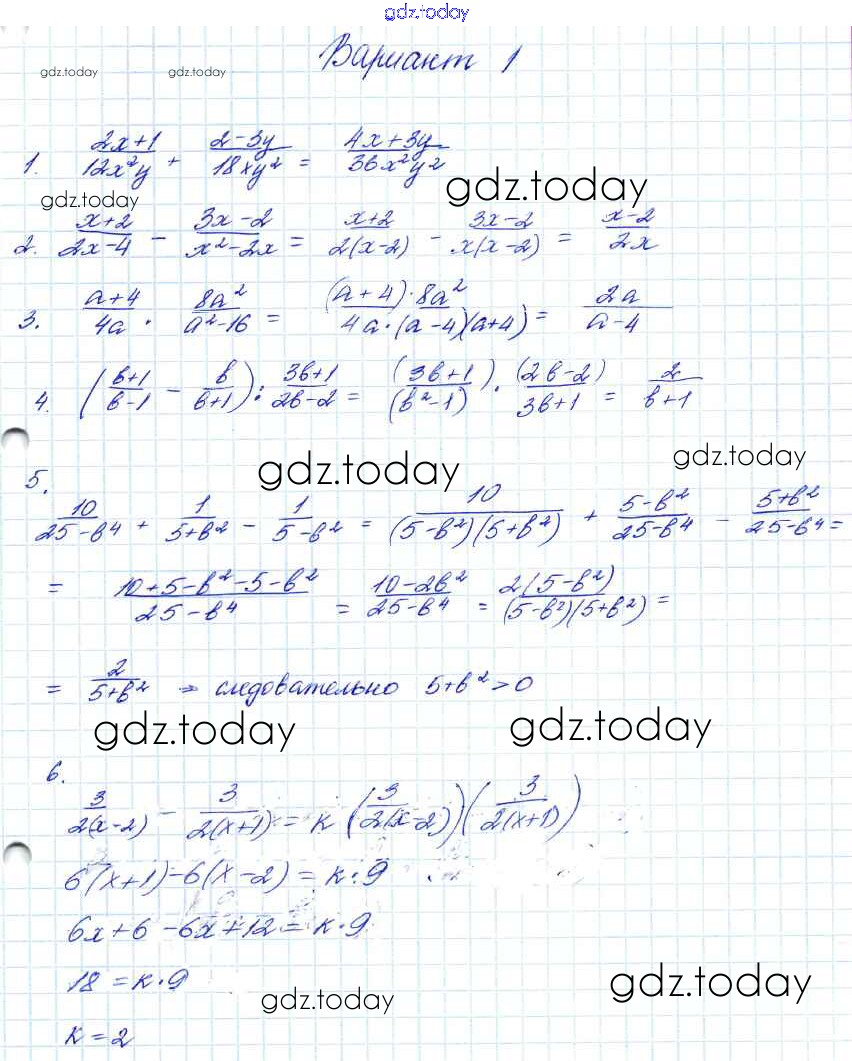 gdz.today
Вариант 1
gdz.today gdz.today
1. (2x+1)/(12x²y) + (2-3y)/(18xy²) = (4x+3y)/(36x²y²)
gdz.today
gdz.today
2. (x+2)/(2x-4) - (3x-2)/(x²-2x) = (x+2)/(2(x-2)) - (3x-2)/(x(x-2)) = (x-2)/(2x)
3. (a+4)/(4a) · (8a²)/(a²-16) = ((a+4)·8a²)/(4a·(a-4)(a+4)) = (2a)/(a-4)
4. ((b+1)/(b-1) - b/(b+1)) : (3b+1)/(2b-2) = (3b+1)/(b²-1) · (2b-2)/(3b+1) = 2/(b+1)
gdz.today gdz.today
5.
10/(25-b⁴) + 1/(5+b²) - 1/(5-b²) = 10/((5-b²)(5+b²)) + (5-b²)/(25-b⁴) - (5+b²)/(25-b⁴) =
= (10+5-b²-5-b²)/(25-b⁴) = (10-2b²)/(25-b⁴) = (2(5-b²))/((5-b²)(5+b²)) =
= 2/(5+b²) ⇒ следовательно 5+b²>0
gdz.today gdz.today
6.
3/(2(x-2)) - 3/(2(x+1)) = к (3/(2(x-2)))(3/(2(x+1)))
6(x+1)-6(x-2) = к·9
6x+6-6x+12 = к·9
18 = к·9
gdz.today gdz.today
к = 2